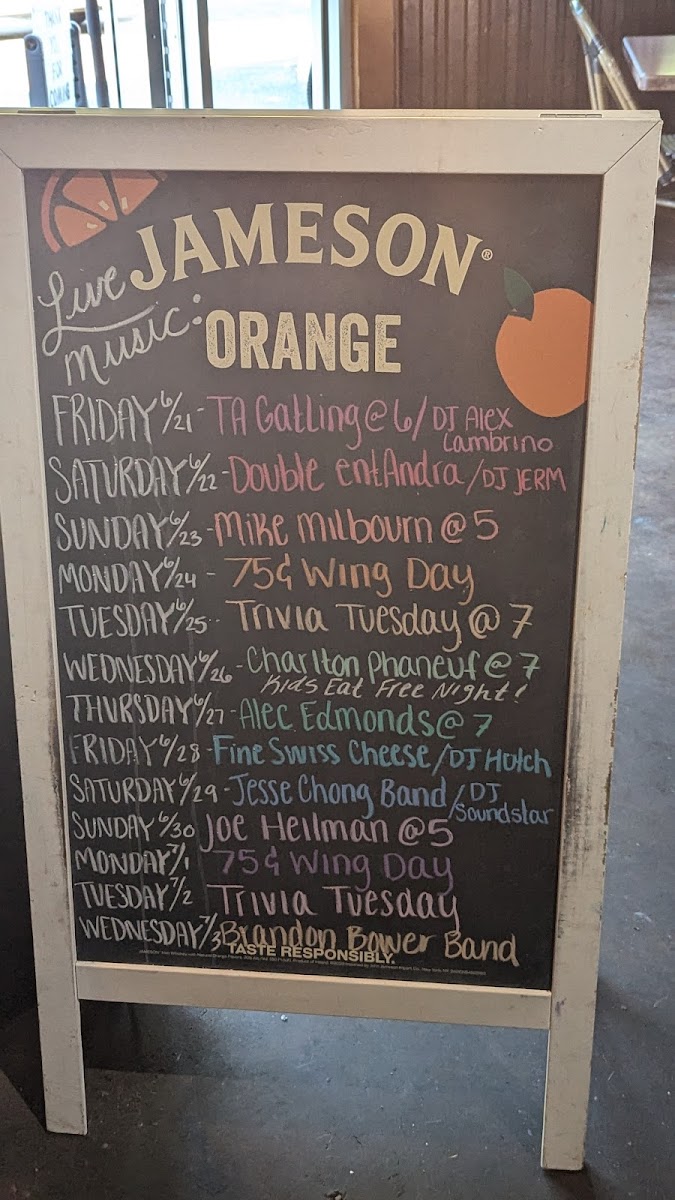 JAMESON®
Live
Music:
ORANGE
FRIDAY 6/21 - TA Gatling @ 6/ DJ Alex
Cambrino
SATURDAY 6/22 - Double entAndra / DJ JERM
SUNDAY 6/23 - Mike Milbourn @ 5
MONDAY 6/24 - 75¢ Wing Day
TUESDAY 6/25 - Trivia Tuesday @ 7
WEDNESDAY 6/26 - Charlton Phaneuf @ 7
Kids Eat Free Night!
THURSDAY 6/27 - Alec Edmonds @ 7
FRIDAY 6/28 - Fine Swiss Cheese / DJ Hutch
SATURDAY 6/29 - Jesse Chong Band / DJ
Soundstar
SUNDAY 6/30 Joe Heilman @ 5
MONDAY 7/1 75¢ Wing Day
TUESDAY 7/2 Trivia Tuesday
WEDNESDAY 7/3 Brandon Bower Band
TASTE RESPONSIBLY.